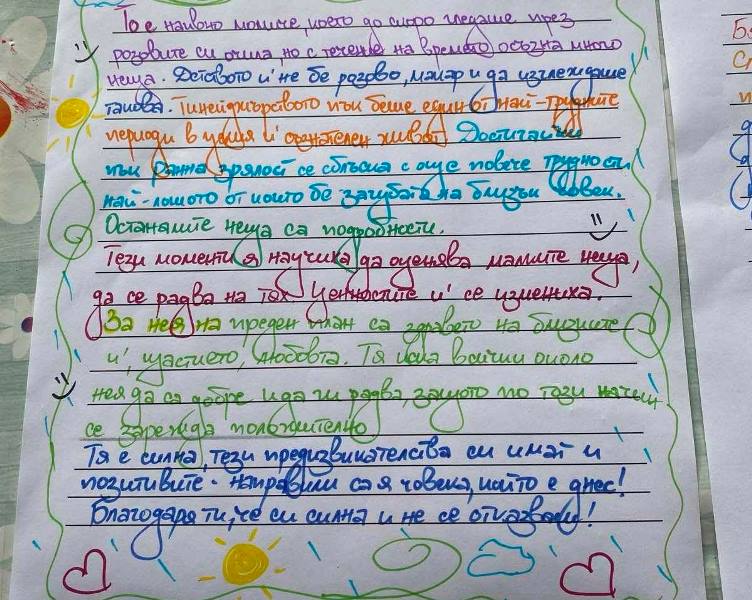 То е наивно момиче, което до скоро гледаше през
розовите си очила, но с течение на времето осъзна много
неща. Детството и' не бе розово, макар и да изглеждаше
такова. Тинейджърството пък беше един от най-трудните
периоди в целия и' съзнателен живот. Достигайки
пък ранна зрялост се сблъска с още повече трудности,
най-лошото от които бе загубата на близък човек.
Останалите неща са подробности.
Тези моменти я научиха да оценява малките неща,
да се радва на тях. Ценностите и' се измениха.
За нея на преден план са здравето на близките
и', щастието, любовта. Тя иска всички около
нея да са добре и да ги радва, защото по този начин
се зарежда положително.
Тя е силна, тези предизвикателства си имат и
позитивите - направили са я човека, който е днес!
Благодаря ти, че си силна и не се отказваш!